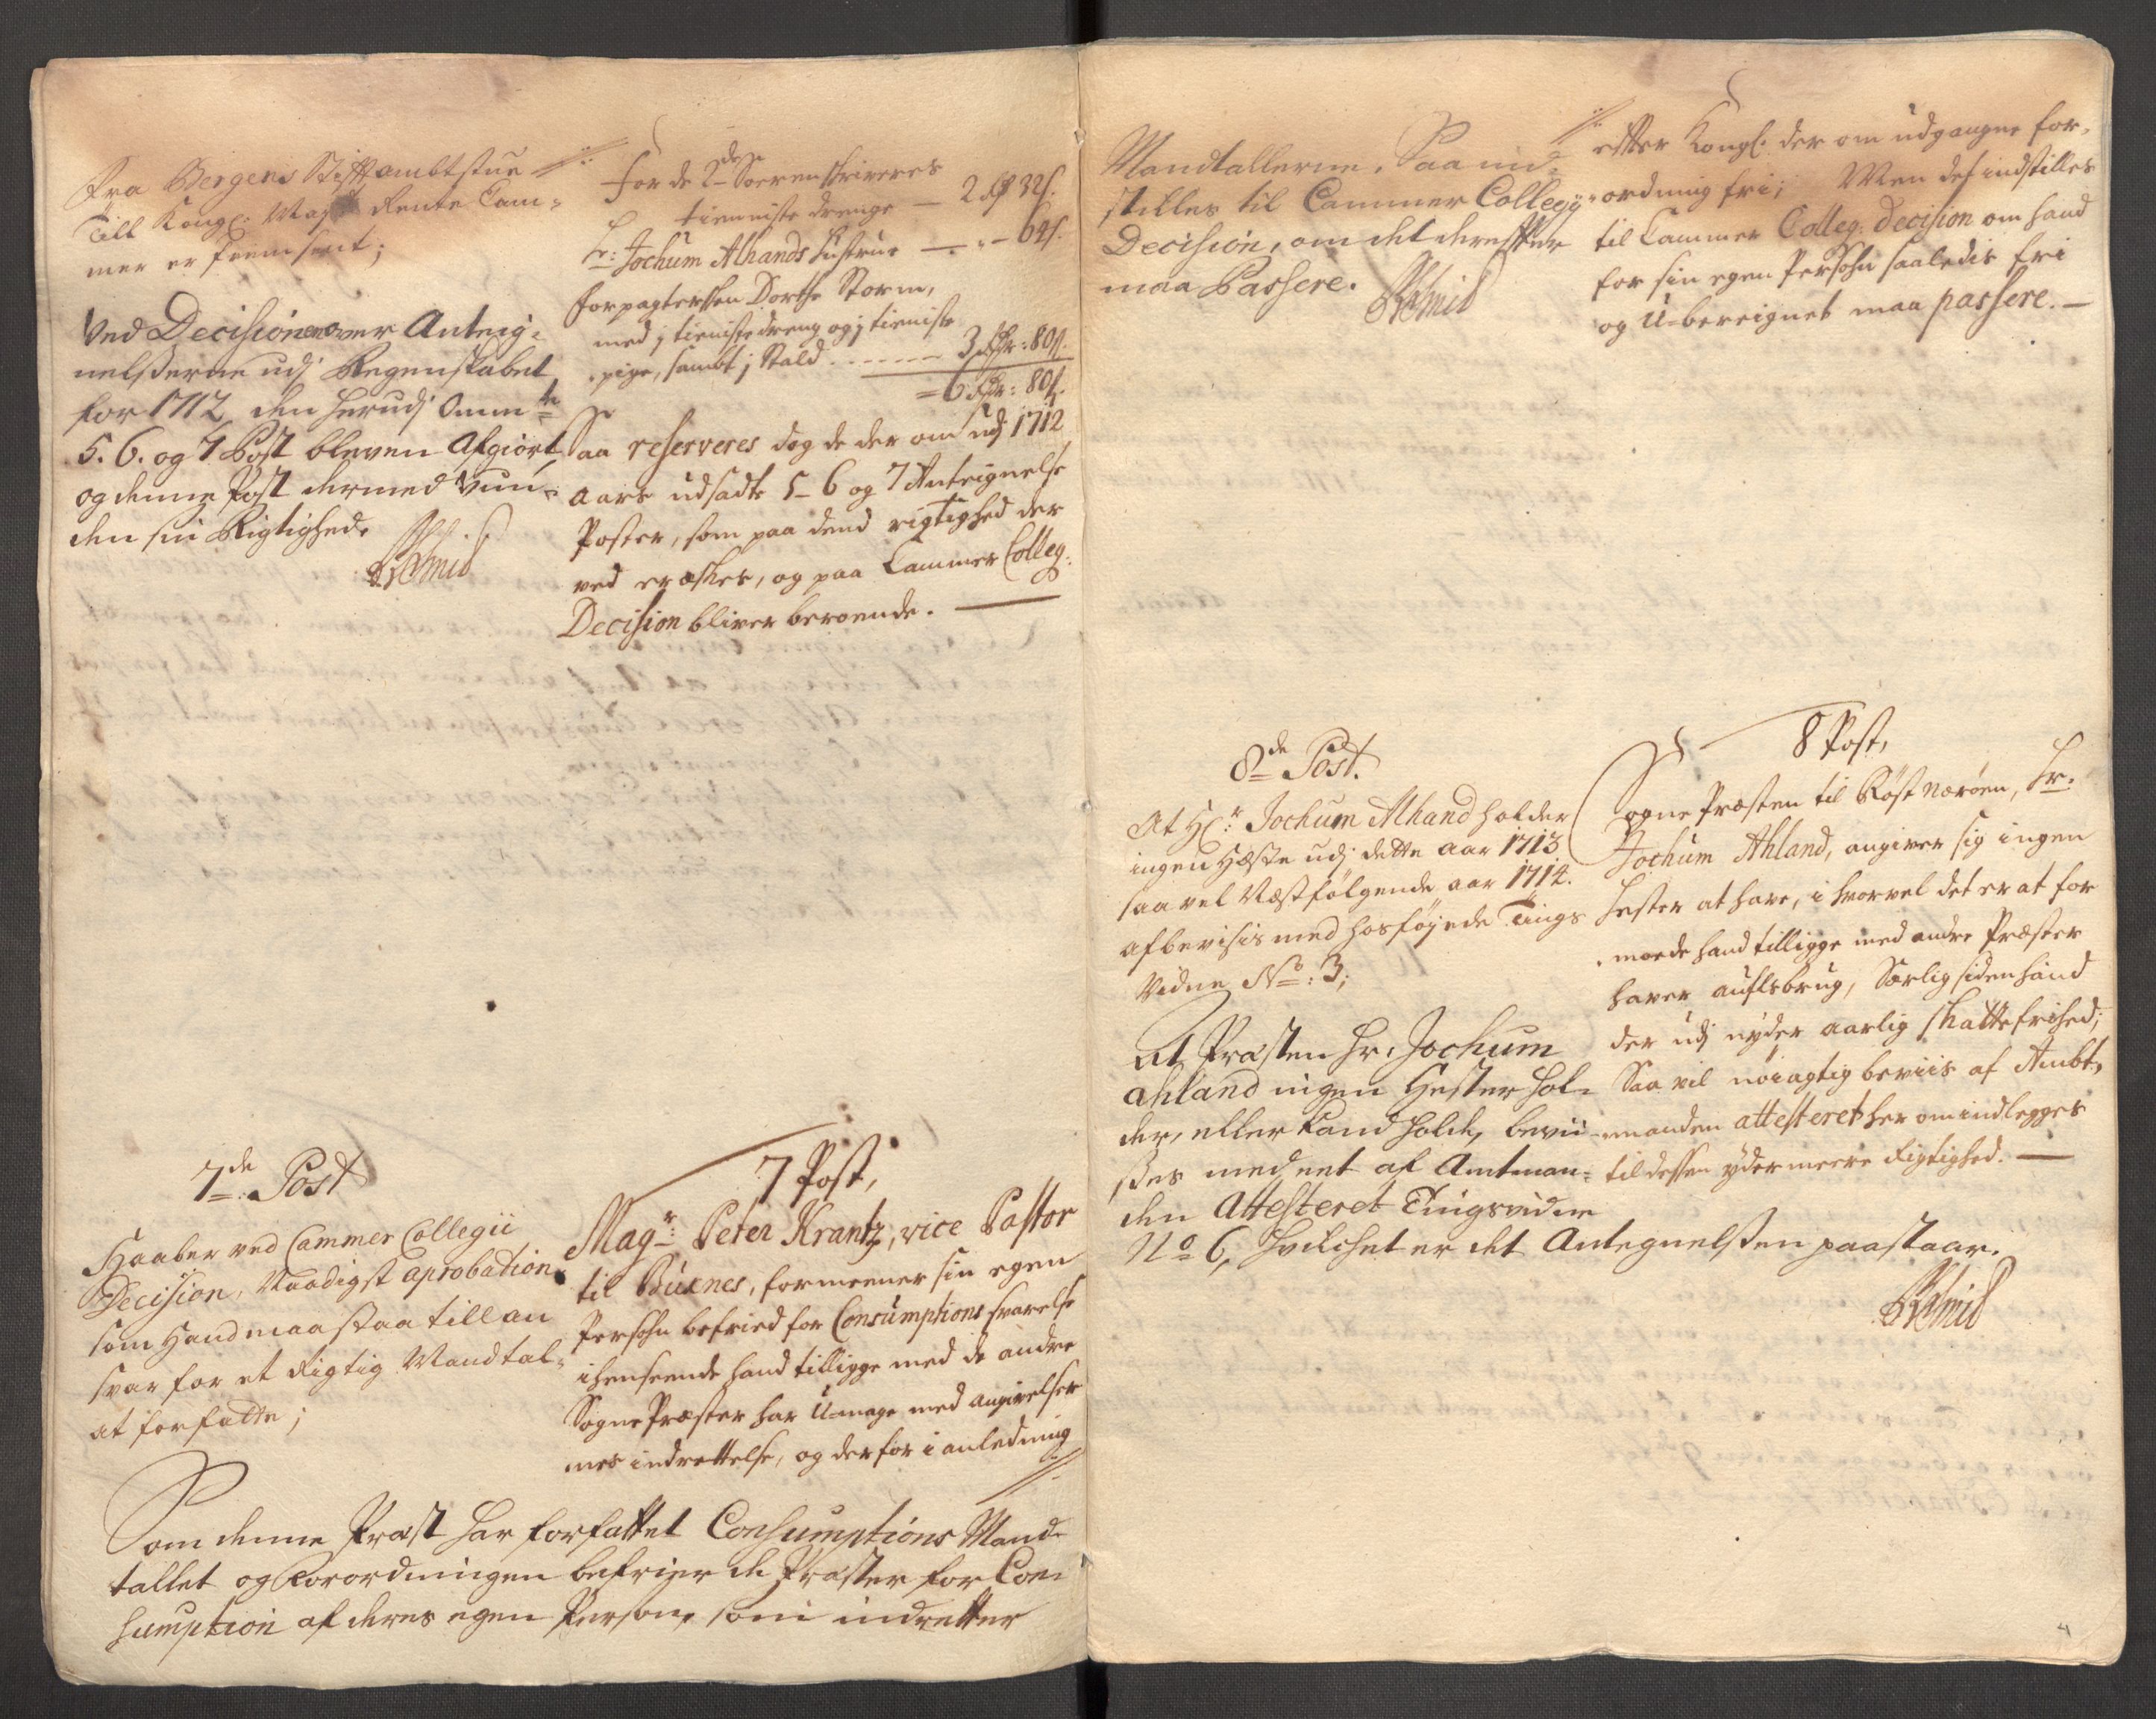 Fra Bergens Stiftambtstue
till Kongl: Maj.t Rente Cam-
mer er frem sent;
Ved Decisionen over Anteig-
nelserne udj Regenskabet
for 1712 den herudj Omm.te
5. 6. og 7 Post bleven Afgiort
og denne Post dermed vun-
den sin Rigtighed.
For de 2de Sorenskriveres
tienniste drenge — 2 rdr 32 s.
Hr: Jochum Alhands Hustrue — „ — 64 s.
Forpagtersken Dorthe Storm,
med j tienistedreng og j tieniste
pige, sambt j Stald - - - - - 3 rdr: 80 s.
= 6 rdr: 80 s.
Saa reserveres dog de der om udj 1712
aars udsadte 5-6 og 7 Anteignelse
Poster, som paa dend rigtighed der
ved eræskes, og paa Cammer Colleg:
Decision bliver beroende. —
7de: Post
Haaber ved Cammer Collegii
Decision, Naadigst aprobation
som Hand maa staa till an
svar for et Rigtig Mandtal
at forfatte;
7 Post,
Mag.r: Peter Krantz, vice Pastor
til Buxnes, formeener sin egen
Persohn befried for Consumptions svarelse
i henseende hand tilligge med de andre
Sogne Præster har U-mage med angivelser
nes indrettelse, og derfor i anledning
Som denne Præst har forfattet Consumptions Mand-
tallet og Forordningen befrier de Præster for Con-
sumption af deres egen Person, som indretter
Mandtallerne. Saa ind-
stilles til Cammer Collegij
Decision, om det derefter
maa Passere.
efter Kongl: der om udgangne for-
ordning fri; Men det indstilles
til Cammer Colleg: Decision om hand
for sin egen Persohn saaledis fri
og U-bereignet maa passere. —
8de Post.
At H.r: Jochum Alhand holder
ingen Hæste udj dette aar 1713
saavel Næstfølgende aar 1714.
afbevisis med hosføyede Tings
Vidne No: 3;
At Præsten Hr. Jochum
Ahland ingen Hester hol-
der, eller kand holde, bevii-
ses med et af Amtman-
den Attesteret Tingsvidne
No 6, hvilchet er det Antegnelsen paastaar.
8 Post,
Sogne Præsten til Røst Værøen, Hr.
Jochum Ahland, angiver sig ingen
Hester at have, i hvorvel det er at for
moede hand tilligge med andre Præster
haver auflsbrug, Særlig siden hand
der udj nyder aarlig skattefrihed;
Saa vil nøiagtig beviis af Ambt-
manden attesteret her om indlegges
til dessen ydermeere Rigtighed. —
4